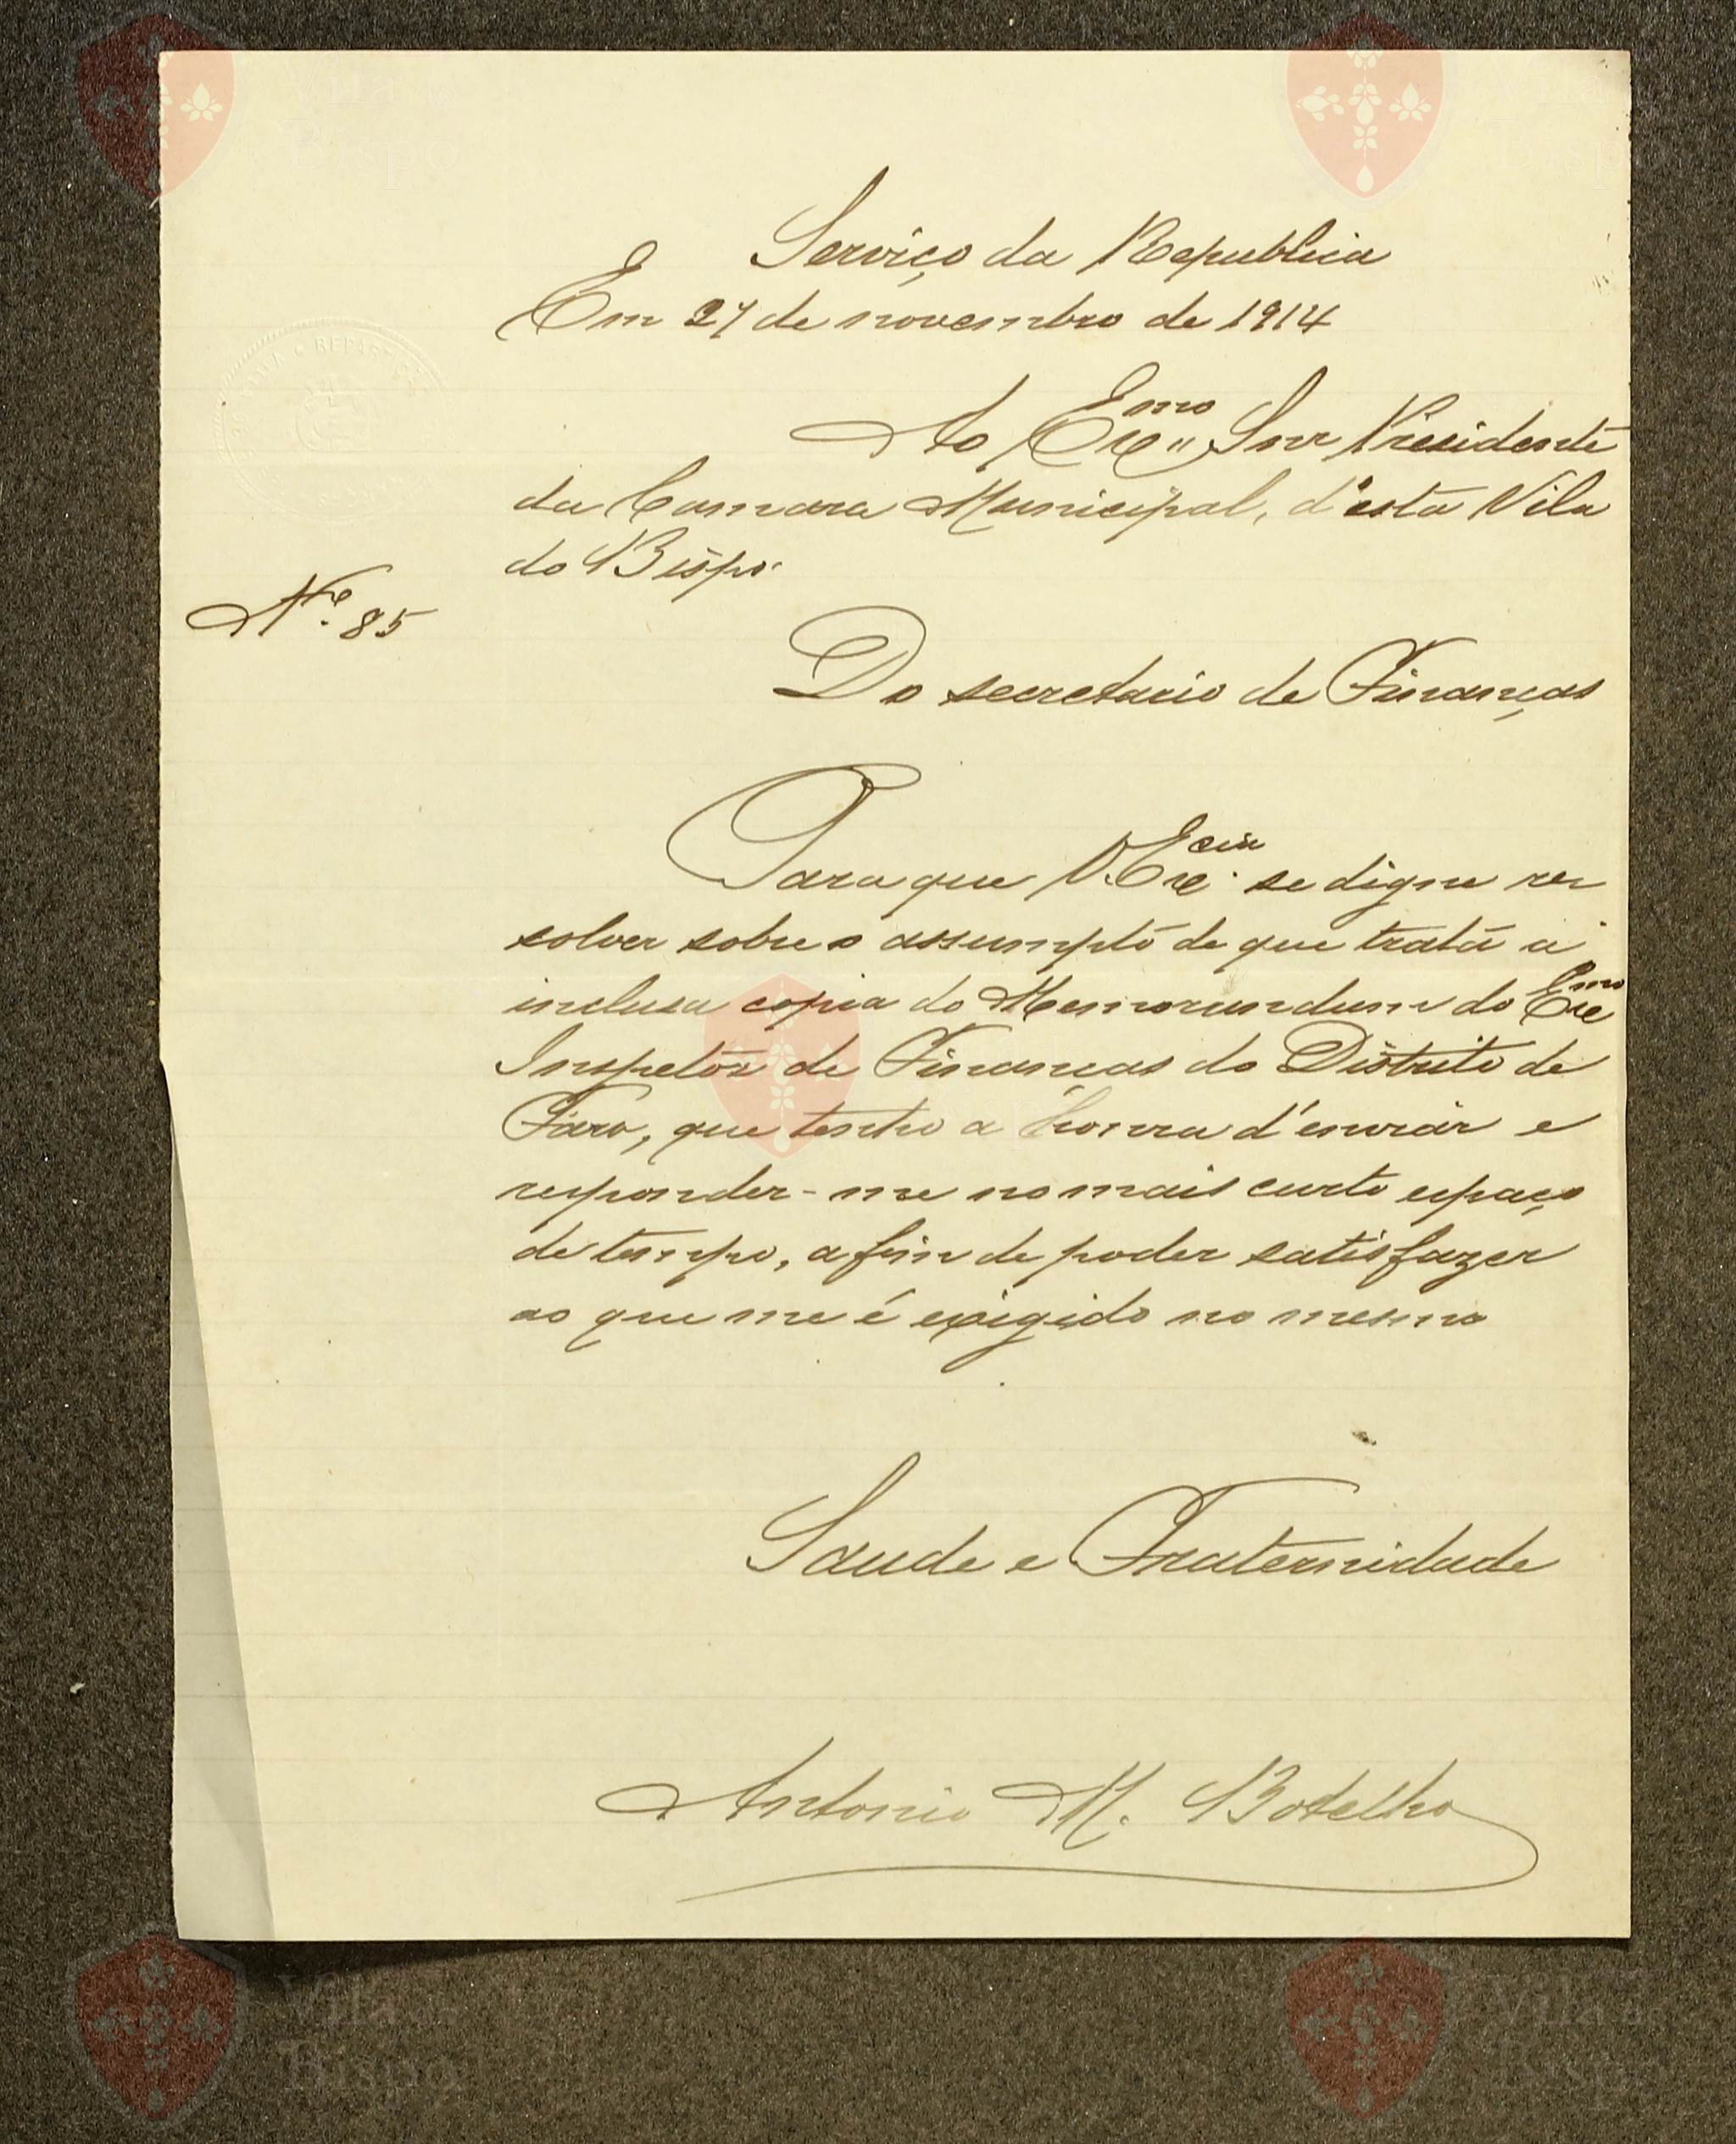 Serviço da Republica
Em 27 de novembro de 1914
Ao Exmo Snr Presidente
da Camara Municipal, d'esta Vila
do Bispo
Nº 85
Do secretario de Finanças
Para que V. Excia se digne re
solver sobre o assumpto de que trata a
inclusa copia do Memorundum do Exmo
Inspetor de Finanças do Distrito de
Faro, que tenho a honra d'enviar e
responder-me no mais curto espaço
de tempo, a fim de poder satisfazer
ao que me é exigido no mesmo
Saude e Fraternidade
Antonio M. Botelho
Vila do
Bispo
Vila do
Bispo